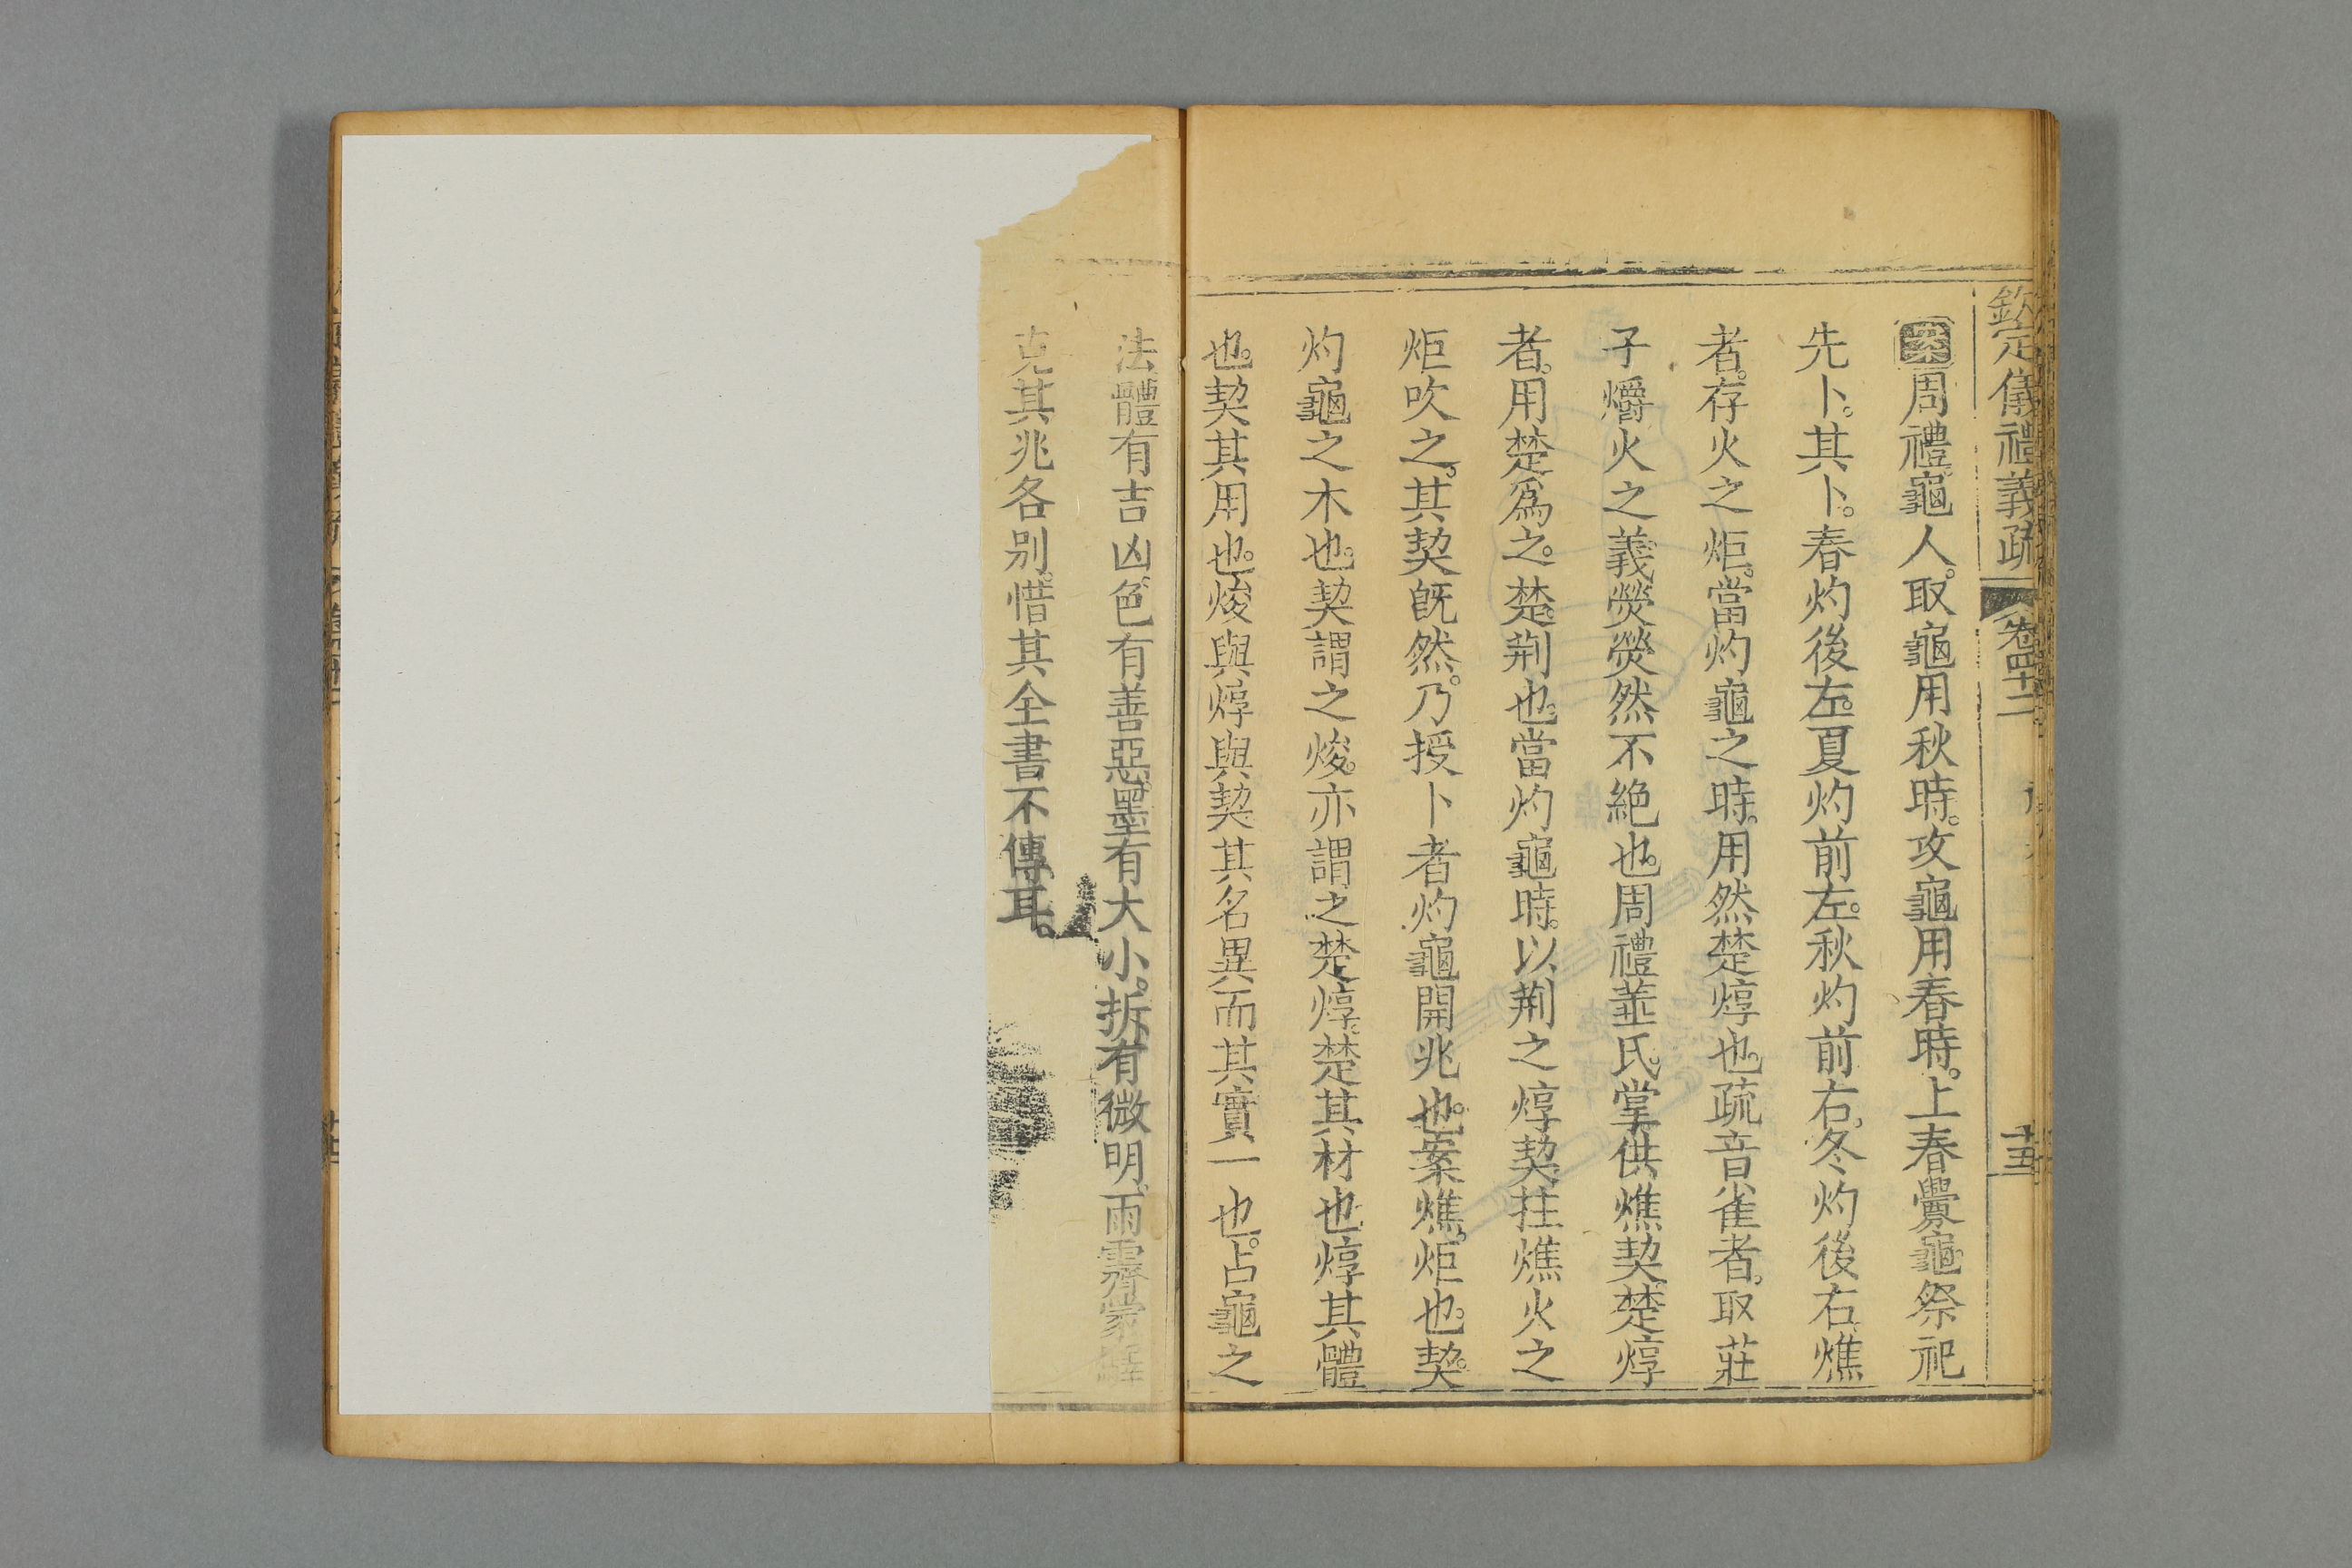 欽定儀禮義疏 卷四十二 十五
案周禮龜人。取龜用秋時。攻龜用春時。上春釁龜祭祀
先卜。其卜。春灼後左。夏灼前左。秋灼前右。冬灼後右。燋
者。存火之炬。當灼龜之時。用然楚焞也。疏音雀者。取莊
子爝火之義。熒熒然不絶也。周禮菙氏。掌供燋契。楚焞
者。用楚爲之。楚。荆也。當灼龜時。以荆之焞契拄燋火之
炬吹之。其契旣然。乃授卜者灼龜開兆也。案燋。炬也。契。
灼龜之木也。契謂之焌。亦謂之楚焞。楚其材也。焞其體
也。契其用也。焌與焞與契其名異而其實一也。占龜之
法體有吉凶。色有善惡。墨有大小。拆有微明。雨霽蒙驛
克其兆各别。惜其全書不傳耳。